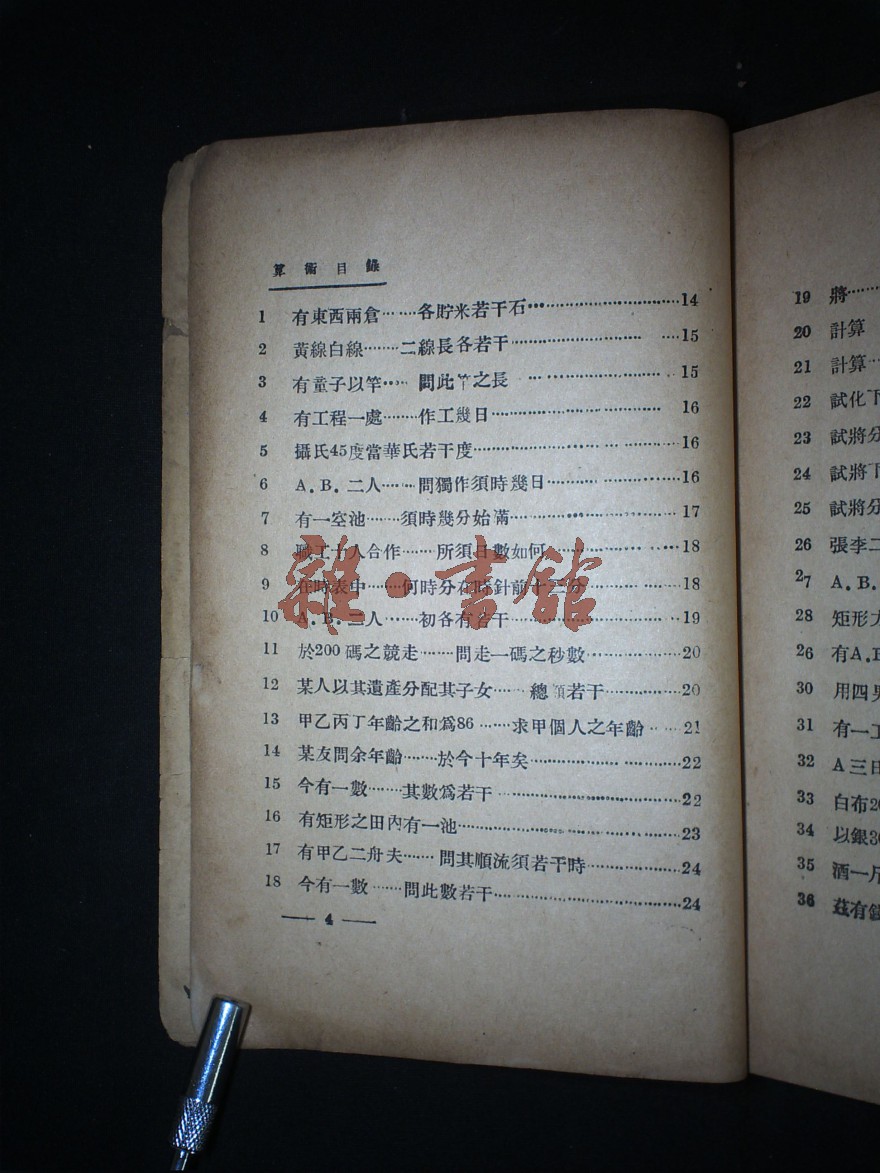 算術目錄
1 有東西兩倉……各貯米若干石……14
2 黃線白線……二線長各若干……15
3 有童子以竿……問此竿之長……15
4 有工程一處……作工幾日……16
5 攝氏45度當華氏若干度……16
6 A.B.二人……問獨作須時幾日……16
7 有一空池……須時幾分始滿……17
8 職工十人合作……所須日數如何……18
9 在時表中……何時分在時針前十二分……18
10 A.B.二人……初各有若干……19
11 於200碼之競走……問走一碼之秒數……20
12 某人以其遺產分配其子女……總額若干……20
13 甲乙丙丁年齡之和爲86……求甲個人之年齡……21
14 某友問余年齡……於今十年矣……22
15 今有一數……其數爲若干……22
16 有矩形之田內有一池……23
17 有甲乙二舟夫……問其順流須若干時……24
18 今有一數……問此數若干……24
— 4 —
雜·書館
19 將……
20 計算
21 計算…
22 試化下
23 試將分
24 試將下
25 試將分
26 張李二
27 A.B.
28 矩形
26 有A.B
30 用四男
31 有一工
32 A三日
33 白布20
34 以銀30
35 酒一斤
36 茲有錢